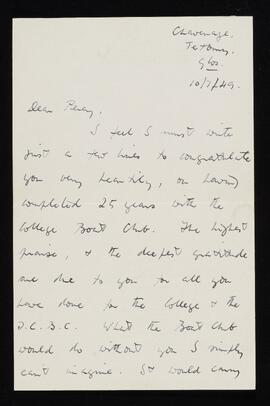 Chavenage.
Tetbury.
Glos.
10/7/49.
Dear Percy,
I feel I must write
just a few lines to congratulate
you very heartily, on having
completed 25 years with the
College Boat Club. The highest
praise, & the deepest gratitude
are due to you for all you
have done for the College & the
J.C.B.C. What the Boat Club
would do without you I simply
can't imagine. It would